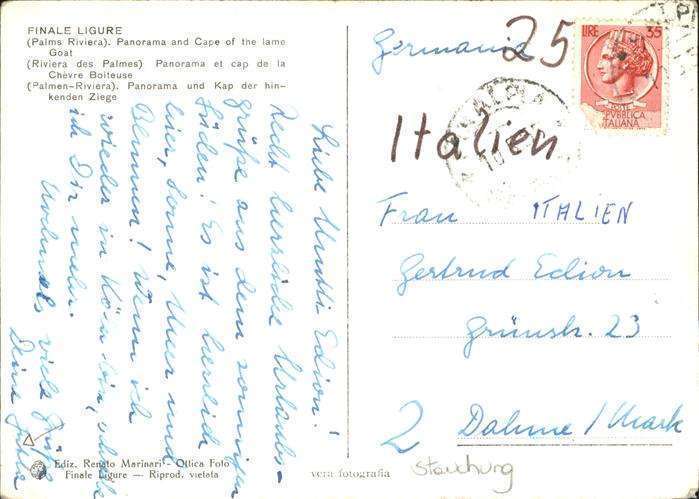 FINALE LIGURE
(Palms Riviera). Panorama and Cape of the lame
Goat
(Riviera des Palmes) Panorama et cap de la
Chèvre Boiteuse
(Palmen-Riviera). Panorama und Kap der hin-
kenden Ziege
Liebe Edion!
Recht herzliche Urlaubs-
grüße aus dem sonnigen
Süden! Es ist herrlich
hier, Sonne, Meer und
Blumen! Wenn ich
wieder in Köln bin,
ich Dir mehr.
Nochmals viele Grüße
Deine
Ediz. Renato Marinari - Ottica Foto
Finale Ligure — Riprod. vietata
vera fotografia
Germania
25
LIRE 35
REPUBBLICA
ITALIANA
Italien
Frau ITALIEN
Gertrud Edion
Grünstr. 23
2 Dahme/Mark
Stauchung